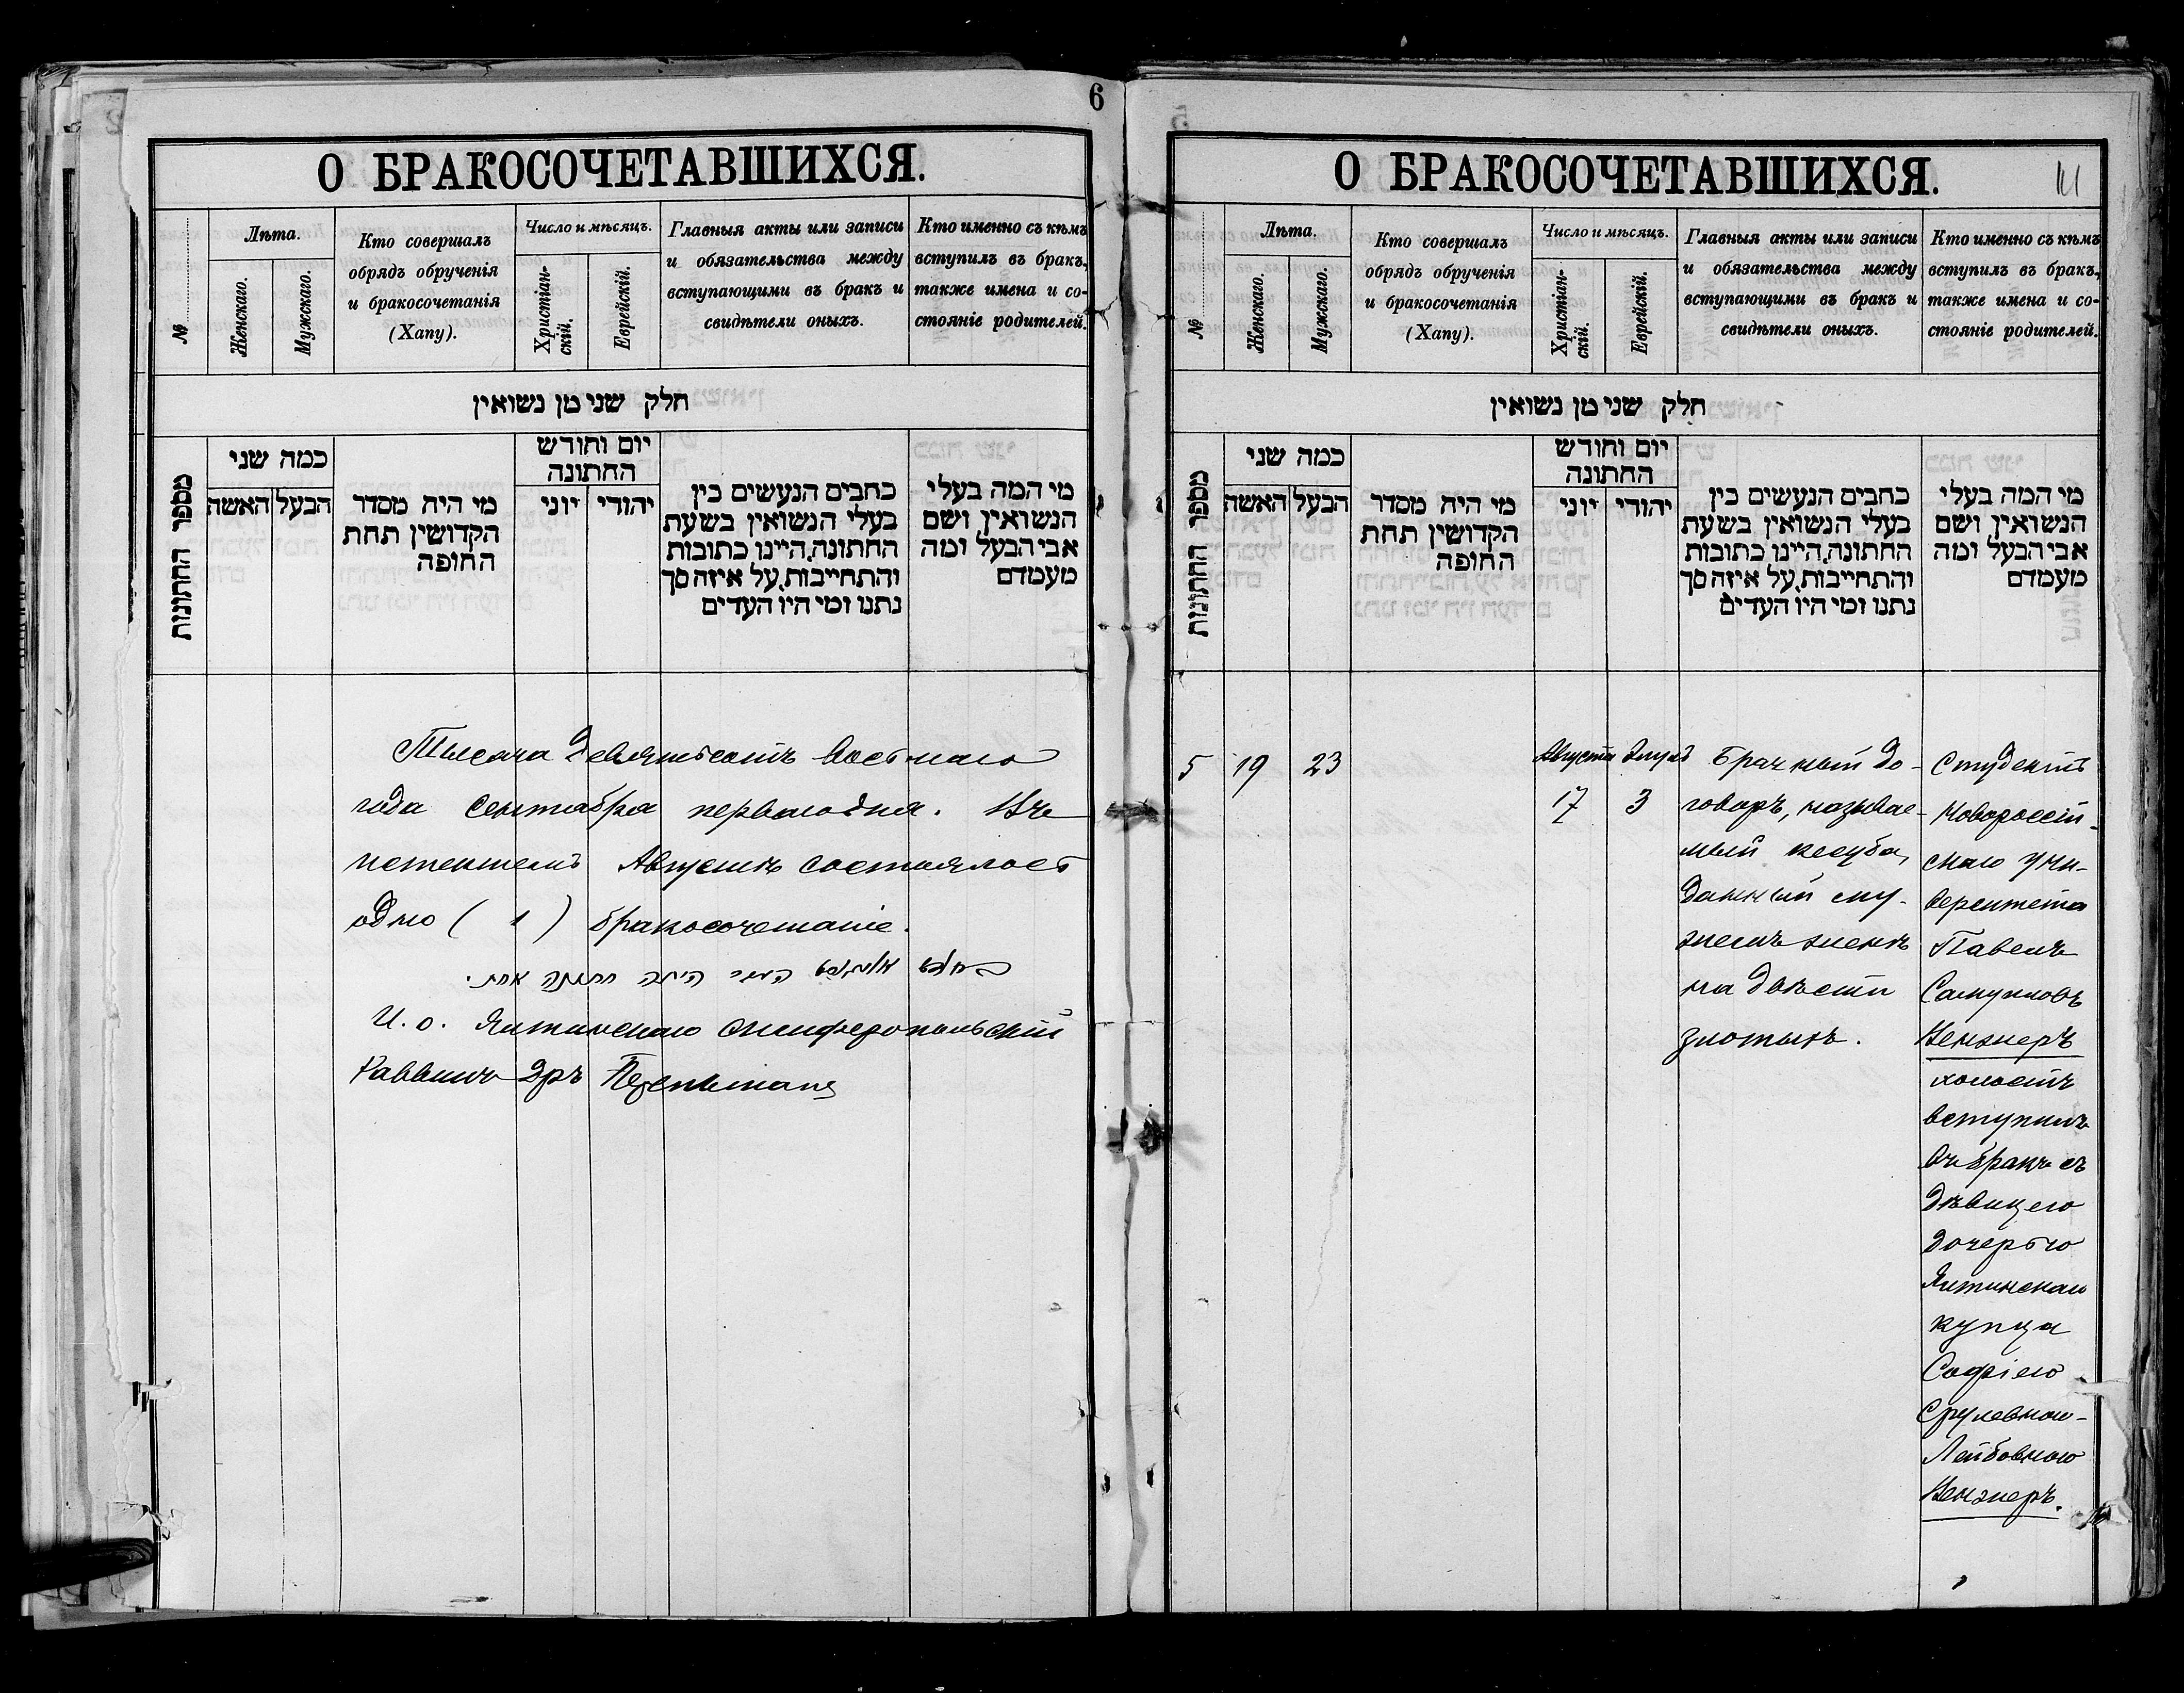 6
О БРАКОСОЧЕТАВШИХСЯ.
№
Лѣта.
Женскаго.
Мужскаго.
Кто совершалъ
обрядъ обрученія
и бракосочетанія
(Хапу).
Число и мѣсяцъ.
Христіан-
скій.
Еврейскій.
Главныя акты или записи
и обязательства между
вступающими въ бракъ и
свидѣтели оныхъ.
Кто именно съ кѣмъ
вступилъ въ бракъ,
также имена и со-
стояніе родителей.
חלק שני מן נשואין
מספר החתונות
כמה שני
האשה
הבעל
מי היה מסדר
הקדושין תחת
החופה
יום וחודש
החתונה
יוני
יהודי
כתבים הנעשים בין
בעלי הנשואין בשעת
החתונה, היינו כתובות
והתחייבות, על איזה סך
נתנו ומי היו העדים
מי המה בעלי
הנשואין ושם
אבי הבעל ומה
מעמדם
Тысяча девятьсотъ восьмаго
года сентября перваго дня. Въ
истекшемъ Августѣ состоялось
одно ( 1 ) бракосочетаніе.
היתה חתונה אחת.
И. о. Ялтинскаго Симферопольскій
Раввинъ Дръ
О БРАКОСОЧЕТАВШИХСЯ.
№
Лѣта.
Женскаго.
Мужскаго.
Кто совершалъ
обрядъ обрученія
и бракосочетанія
(Хапу).
Число и мѣсяцъ.
Христіан-
скій.
Еврейскій.
Главныя акты или записи
и обязательства между
вступающими въ бракъ и
свидѣтели оныхъ.
Кто именно съ кѣмъ
вступилъ въ бракъ,
также имена и со-
стояніе родителей.
חלק שני מן נשואין
מספר החתונות
כמה שני
האשה
הבעל
מי היה מסדר
הקדושין תחת
החופה
יום וחודש
החתונה
יוני
יהודי
כתבים הנעשים בין
בעלי הנשואין בשעת
החתונה, היינו כתובות
והתחייבות, על איזה סך
נתנו ומי היו העדים
מי המה בעלי
הנשואין ושם
אבי הבעל ומה
מעמדם
5
19
23
Августа
17
Элулъ
3
Брачный до-
говоръ, называе-
мый кесуба,
данный му-
жемъ женѣ
на двѣсти
злотыхъ.
Студентъ
Новороссій-
скаго Уни-
верситета
Павелъ
Самуиловъ
Нензнеръ
холостъ
вступилъ
въ бракъ съ
дѣвицею
дочерью
Ялтинскаго
купца
Софіею
Срулевною-
Лейбовною
Нензнеръ.